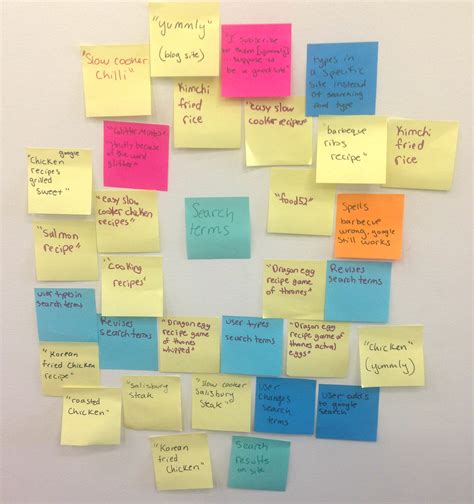 "yummly"
(blog site)
"Slow cooker
Chilli"
"I subscribe
to them (yummly)
suppose to
be a good site"
types in
a specific
site instead
of searching
food type
Kimchi
fried
rice
"easy slow
cooker recipes"
"Glitter Moms"
strictly because
of the word
glitter"
"barbeque
ribs
recipe"
Kimchi
fried
rice
google
"Chicken
recipes
grilled
sweet"
"easy slow
cooker chicken
recipes"
Search
terms
"food52"
Spells
barbecue
wrong, google
still works
"Salmon
recipe"
"Cooking
recipes"
"Dragon egg
recipe game
of thrones"
Revises
search terms
user types in
search terms
Revises
search terms
"Dragon egg
recipe game
of thrones
whipped"
user types
search terms
"Dragon egg
recipe game of
thrones actual
eggs"
"Chicken"
(yummly)
"Korean
fried chicken
recipe"
"roasted
Chicken"
Salisbury
steak
"Slow cooker
Salisbury
Steak"
user
changes
search
terms
user adds
to
google
search
"Korean
fried
Chicken"
Search
results
on site